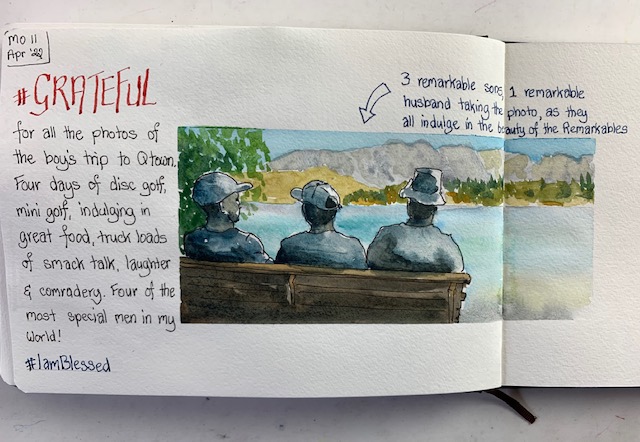 MO 11
Apr '22
#GRATEFUL
for all the photos of
the boy's trip to Qtown.
Four days of disc golf,
mini golf, indulging in
great food, truck loads
of smack talk, laughter
& comradery. Four of the
most special men in my
world!
#IamBlessed
3 remarkable sons, 1 remarkable
husband taking the photo, as they
all indulge in the beauty of the Remarkables